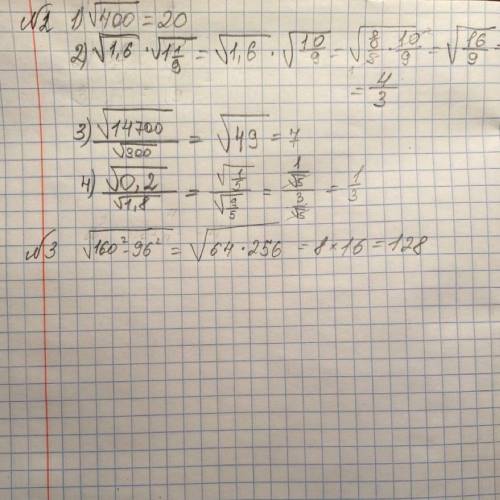 №2 1) √400 = 20
2) √1,6 · √1 1/9 = √1,6 · √10/9 = √8/5 · 10/9 = √16/9 =
= 4/3
3) √14700 / √300 = √49 = 7
4) √0,2 / √1,8 = √1/5 / √9/5 = 1/√5 / 3/√5 = 1/3
№3 √160² - 96² = √64 · 256 = 8 × 16 = 128